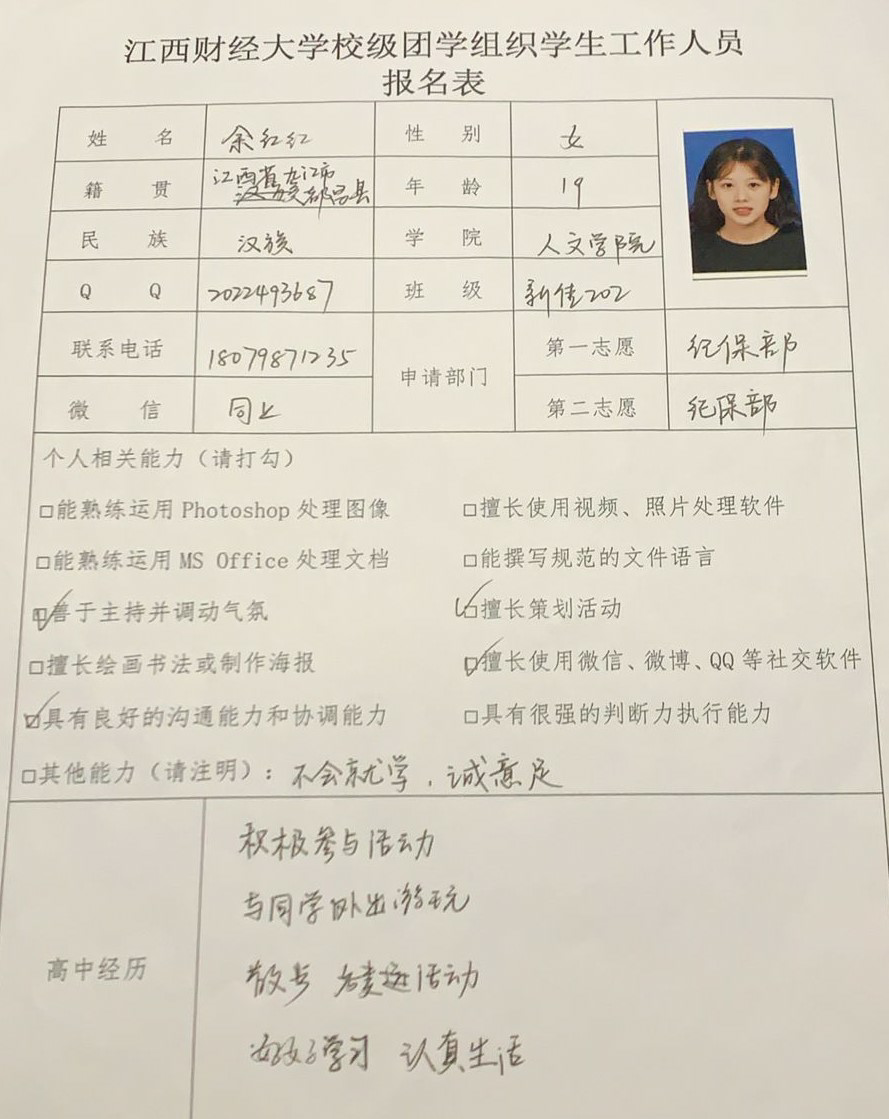 江西财经大学校级团学组织学生工作人员
报名表
姓 名 余红红 性 别 女
籍 贯 江西省九江市都昌县 年 龄 19
民 族 汉族 学 院 人文学院
Q Q 2022493687 班 级 新传202
联系电话 18079871235 申请部门 第一志愿 纪保部
微 信 同上 第二志愿 纪保部
个人相关能力（请打勾）
□能熟练运用 Photoshop 处理图像 □擅长使用视频、照片处理软件
□能熟练运用 MS Office 处理文档 □能撰写规范的文件语言
☑善于主持并调动气氛 ☑擅长策划活动
□擅长绘画书法或制作海报 ☑擅长使用微信、微博、QQ 等社交软件
☑具有良好的沟通能力和协调能力 □具有很强的判断力执行能力
□其他能力（请注明）：不会就学，诚意足
高中经历
积极参与活动
与同学外出游玩
散步 活动
好好学习 认真生活